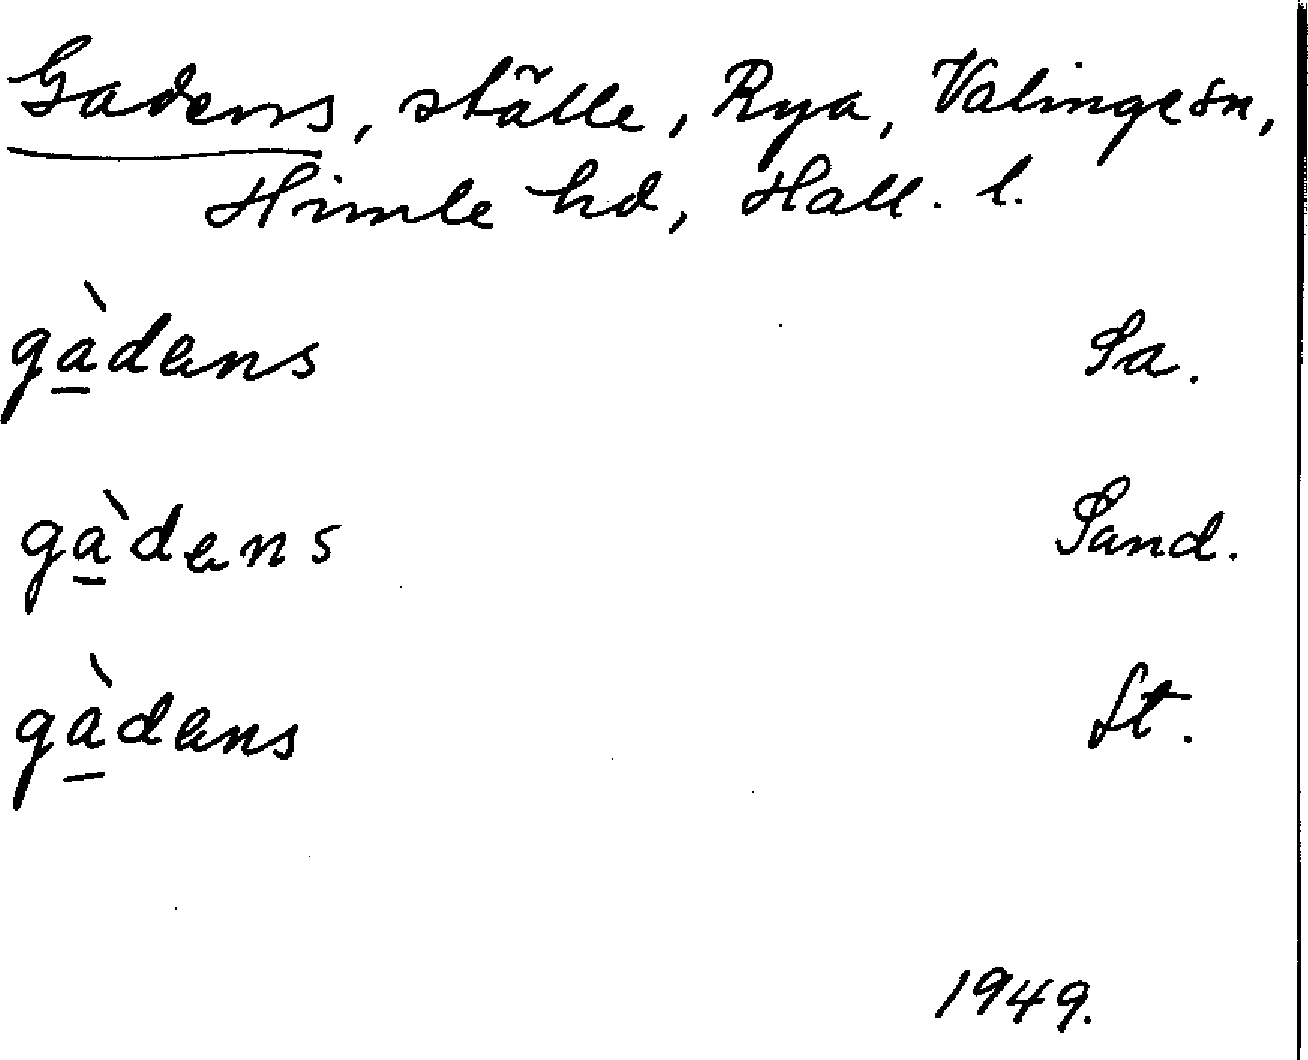 Gadens, ställe, Rya, Valinge sn,
Himle hd, Hall. l.
gàdens Sa.
gàdens Sand.
gàdens St.
1949.